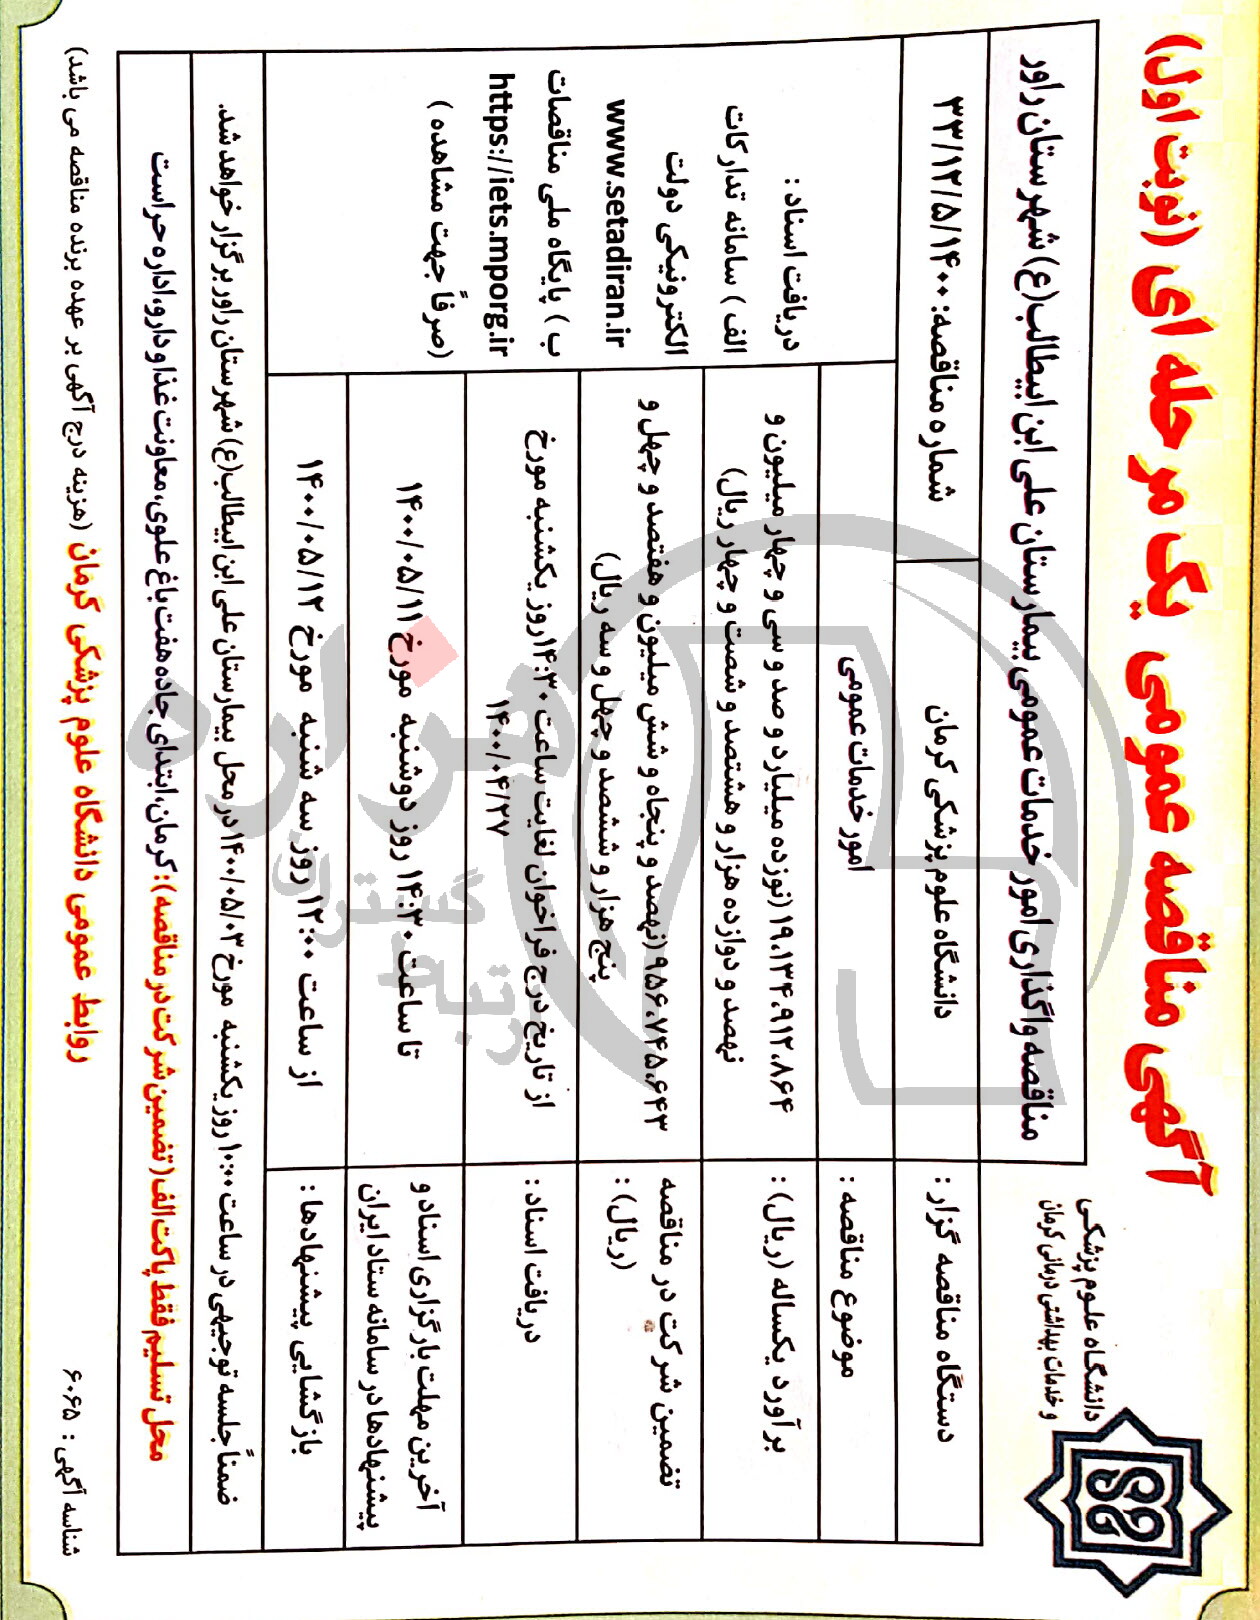 آگهی مناقصه عمومی یک مرحله ای (نوبت اول)
دانشگاه علوم پزشکی
و خدمات بهداشتی درمانی کرمان
مناقصه واگذاری امور خدمات عمومی بیمارستان علی ابن ابیطالب(ع) شهرستان راور
دستگاه مناقصه گزار :
دانشگاه علوم پزشکی کرمان
شماره مناقصه: ۳۳/۱۲/۵/۱۴۰۰
موضوع مناقصه :
امور خدمات عمومی
برآورد یکساله (ریال) :
۱۹،۱۳۴،۹۱۲،۸۶۴ (نوزده میلیارد و صد و سی و چهار میلیون و
نهصد و دوازده هزار و هشتصد و شصت و چهار ریال)
تضمین شرکت در مناقصه
(ریال) :
۹۵۶،۷۴۵،۶۴۳ (نهصد و پنجاه و شش میلیون و هفتصد و چهل و
پنج هزار و ششصد و چهل و سه ریال)
دریافت اسناد :
از تاریخ درج فراخوان لغایت ساعت ۱۴:۳۰روز یکشنبه مورخ
۱۴۰۰/۰۴/۲۷
آخرین مهلت بارگزاری اسناد و
پیشنهادها در سامانه ستاد ایران
تا ساعت ۱۴:۳۰ روز دوشنبه مورخ ۱۴۰۰/۰۵/۱۱
بازگشایی پیشنهادها :
از ساعت ۱۲:۰۰ روز سه شنبه مورخ ۱۴۰۰/۰۵/۱۲
دریافت اسناد :
الف ) سامانه تدارکات
الکترونیکی دولت
www.setadiran.ir
ب ) پایگاه ملی مناقصات
https://iets.mporg.ir
(صرفاً جهت مشاهده )
ضمناً جلسه توجیهی در ساعت ۱۰:۰۰ روز یکشنبه مورخ ۱۴۰۰/۰۵/۰۳ در محل بیمارستان علی ابن ابیطالب(ع) شهرستان راور برگزار خواهد شد.
محل تسلیم فقط پاکت الف( تضمین شرکت در مناقصه ): کرمان، ابتدای جاده هفت باغ علوی، معاونت غذا و دارو، اداره حراست
شناسه آگهی : ۶۰۶۵
روابط عمومی دانشگاه علوم پزشکی کرمان (هزینه درج آگهی بر عهده برنده مناقصه می باشد)